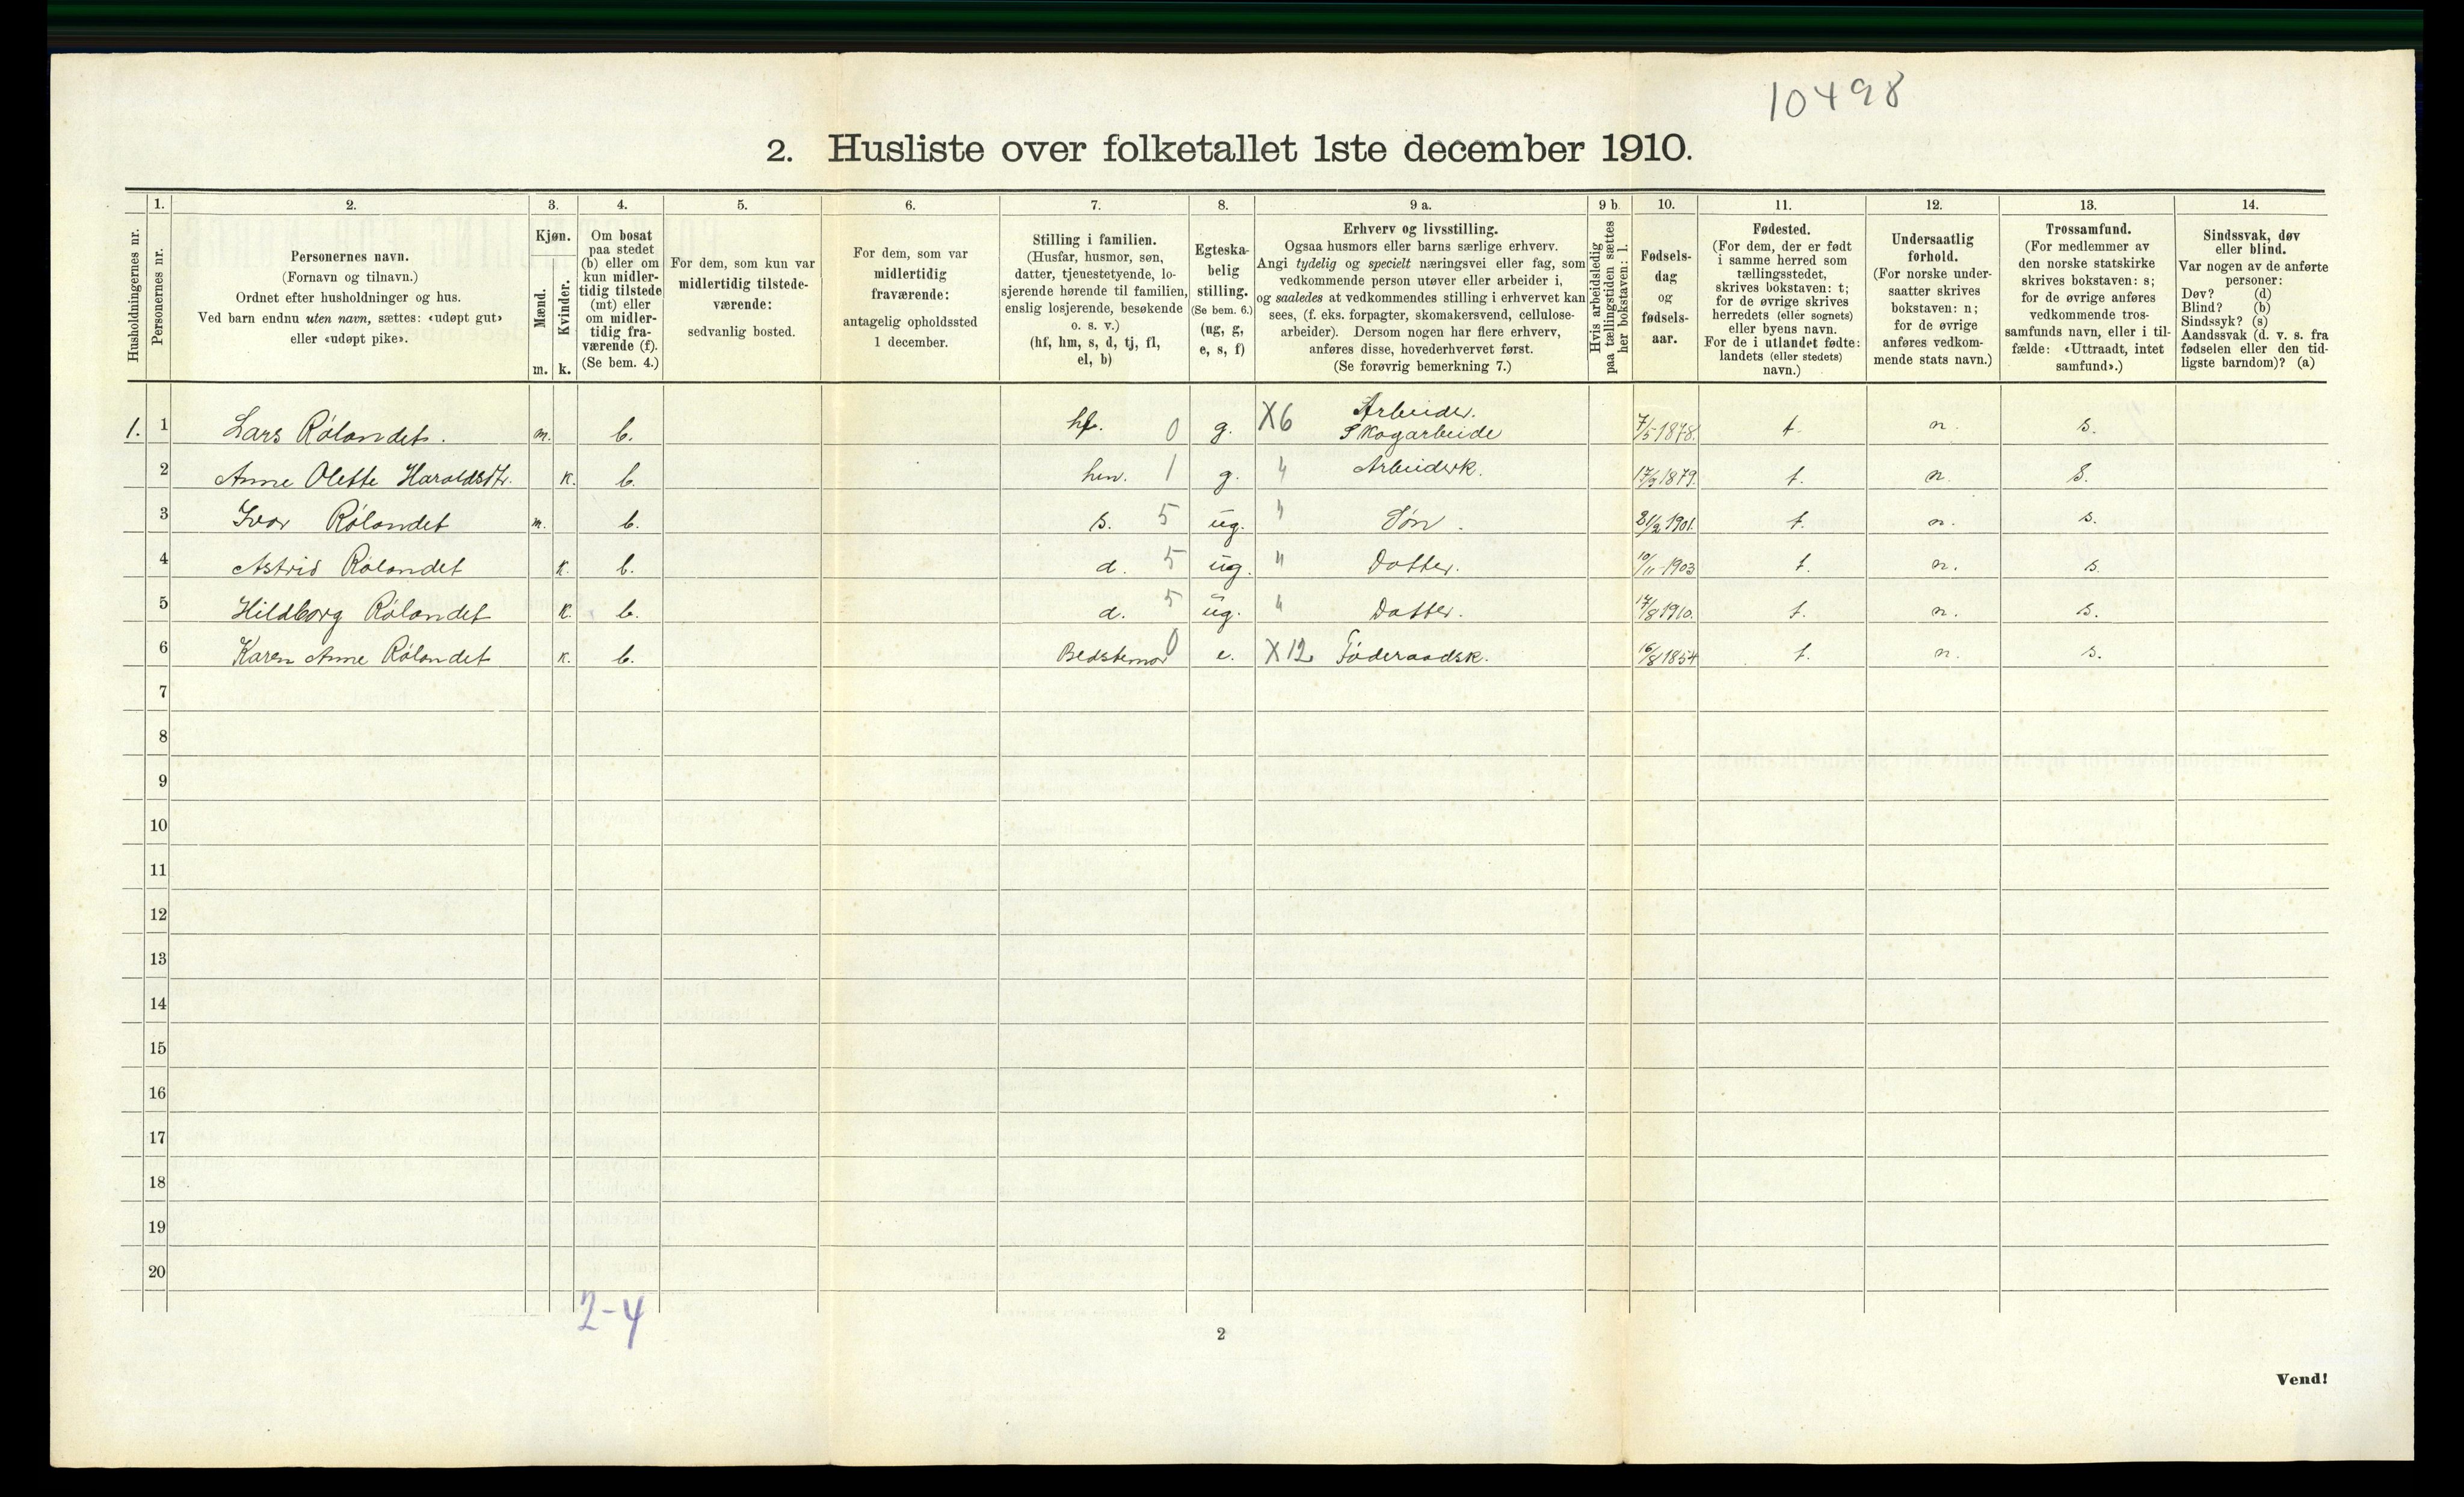 10498
2. Husliste over folketallet 1ste december 1910.
Husholdningernes nr.
1.
Personernes nr.
2.
Personernes navn.
(Fornavn og tilnavn.)
Ordnet efter husholdninger og hus.
Ved barn endnu uten navn, sættes: «udøpt gut»
eller «udøpt pike».
3.
Kjøn.
Mænd.
Kvinder.
m. k.
4.
Om bosat
paa stedet
(b) eller om
kun midler-
tidig tilstede
(mt) eller
om midler-
tidig fra-
værende (f).
(Se bem. 4.)
5.
For dem, som kun var
midlertidig tilstede-
værende:
sedvanlig bosted.
6.
For dem, som var
midlertidig
fraværende:
antagelig opholdssted
1 december.
7.
Stilling i familien.
(Husfar, husmor, søn,
datter, tjenestetyende, lo-
sjerende hørende til familien,
enslig losjerende, besøkende
o. s. v.)
(hf, hm, s, d, tj, fl,
el, b)
8.
Egteska-
belig
stilling.
(Se bem. 6.)
(ug, g,
e, s, f)
9 a.
Erhverv og livsstilling.
Ogsaa husmors eller barns særlige erhverv.
Angi tydelig og specielt næringsvei eller fag, som
vedkommende person utøver eller arbeider i,
og saaledes at vedkommendes stilling i erhvervet kan
sees, (f. eks. forpagter, skomakersvend, cellulose-
arbeider). Dersom nogen har flere erhverv,
anføres disse, hovederhvervet først.
(Se forøvrig bemerkning 7.)
9 b.
Hvis arbeidsledig
paa tællingstiden sættes
her bokstaven: l.
10.
Fødsels-
dag
og
fødsels-
aar.
11.
Fødested.
(For dem, der er født
i samme herred som
tællingsstedet,
skrives bokstaven: t;
for de øvrige skrives
herredets (eller sognets)
eller byens navn.
For de i utlandet fødte:
landets (eller stedets)
navn.)
12.
Undersaatlig
forhold.
(For norske under-
saatter skrives
bokstaven: n;
for de øvrige
anføres vedkom-
mende stats navn.)
13.
Trossamfund.
(For medlemmer av
den norske statskirke
skrives bokstaven: s;
for de øvrige anføres
vedkommende tros-
samfunds navn, eller i til-
fælde: «Uttraadt, intet
samfund».)
14.
Sindssvak, døv
eller blind.
Var nogen av de anførte
personer:
Døv? (d)
Blind? (b)
Sindssyk? (s)
Aandssvak (d. v. s. fra
fødselen eller den tid-
ligste barndom)? (a)
1. 1 Lars Rólandet. m. b. hf. 0 g. X6 Arbeider. Skogarbeide 7/5 1878. t. n. s.
2 Anne Olette Haroldsdtr. k. b. hm. 1 g. " Arbeiderk. 17/9 1879. t. n. s.
3 Ivor Rólandet m. b. s. 5 ug. " Søn. 21/2 1901. t. n. s.
4 Astrid Rólandet k. b. d. 5 ug. " Datter. 10/11 1903 t. n. s.
5 Hildborg Rólandet k. b. d. 5 ug. " Datter. 17/8 1910. t. n. s.
6 Karen Anne Rólandet k. b. Bedstemor 0 e. X12 Föderaadsk. 16/8 1854 t. n. s.
7
8
9
10
11
12
13
14
15
16
17
18
19
20
2-4
2
Vend!